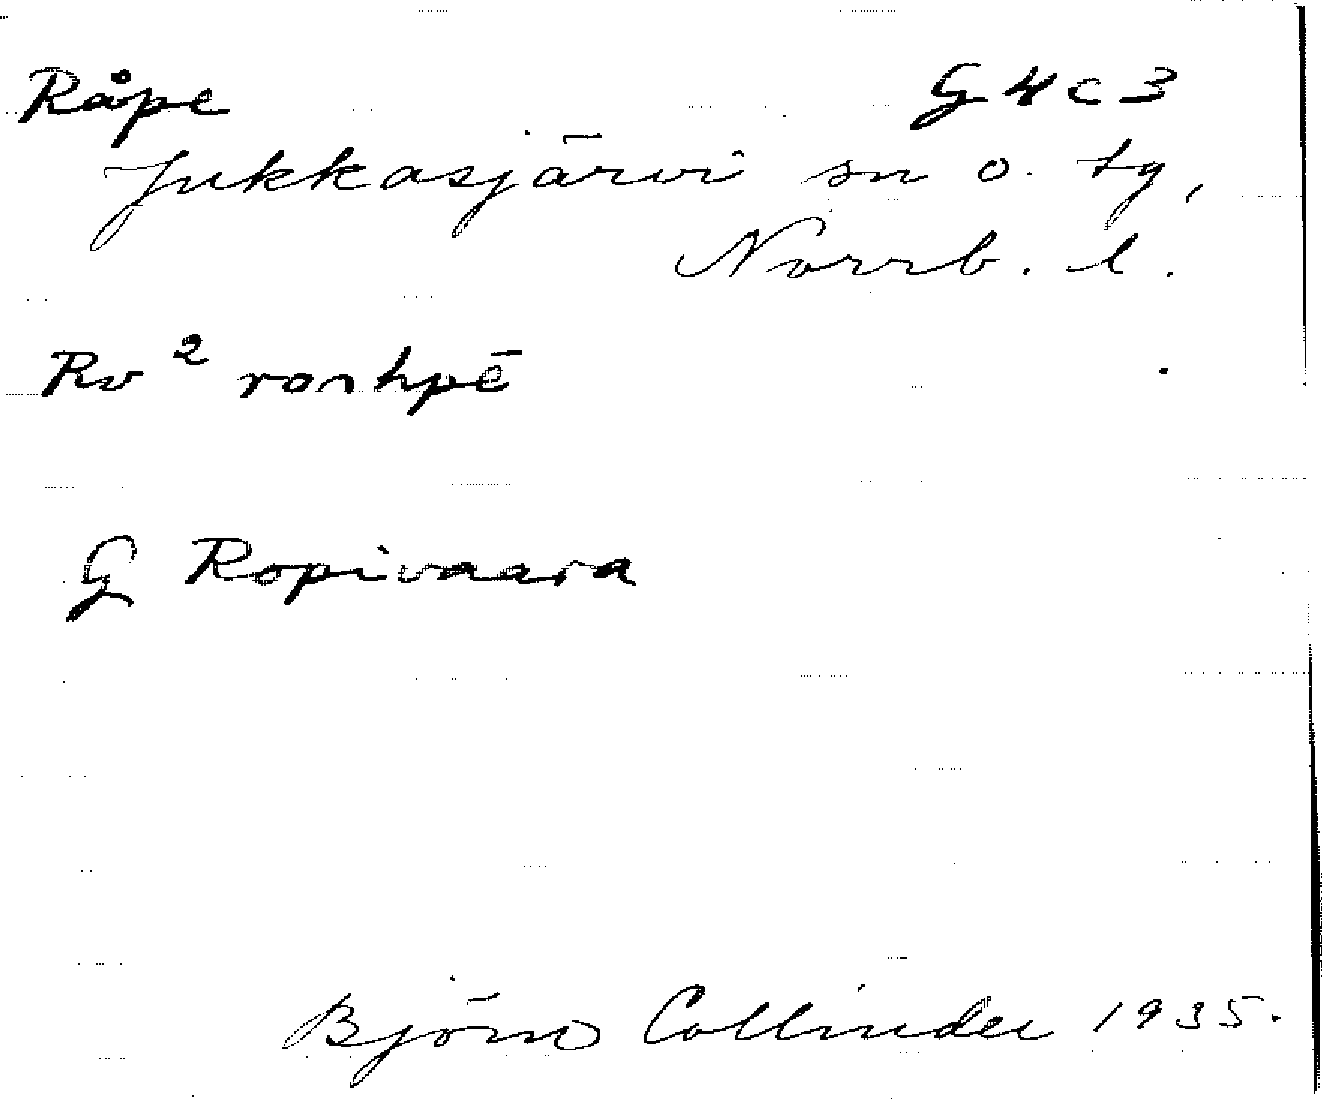 Råpe G 4 c 3
Jukkasjärvi sn o. tg,
Norrb. l.
Rv ²
G Ropivaara
Björn Collinder 1935.